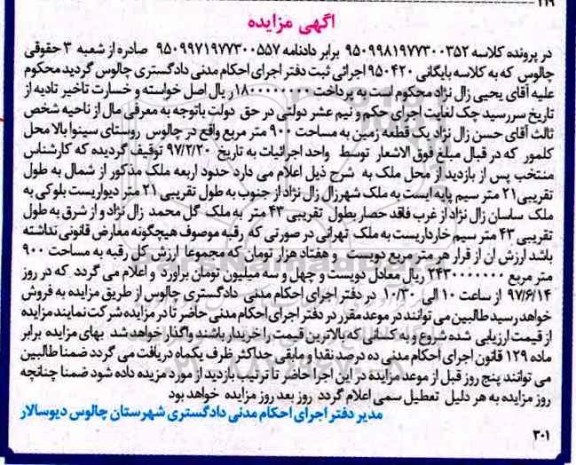 آگهی مزایده
در پرونده کلاسه ۹۵۰۹۹۸۱۹۷۷۳۰۰۳۵۲ برابر دادنامه ۹۵۰۹۹۷۱۹۷۷۳۰۰۵۵۷ صادره از شعبه ۳ حقوقی
چالوس که به کلاسه بایگانی ۹۵۰۴۲۰ اجرائی ثبت دفتر اجرای احکام مدنی دادگستری چالوس گردید محکوم
علیه آقای یحیی زال نژاد محکوم است به پرداخت ۱۸۰۰۰۰۰۰۰۰ ریال اصل خواسته و خسارت تاخیر تادیه از
تاریخ سررسید چک لغایت اجرای حکم و نیم عشر دولتی در حق دولت باتوجه به معرفی مال از ناحیه شخص
ثالث آقای حسن زال نژاد یک قطعه زمین به مساحت ۹۰۰ متر مربع واقع در چالوس روستای سینوا بالا محل
کلمور که در قبال مبلغ فوق الاشعار توسط واحد اجرائیات به تاریخ ۹۷/۲/۲۰ توقیف گردیده که کارشناس
منتخب پس از بازدید از محل ملک به شرح ذیل اعلام می دارد حدود اربعه ملک مذکور از شمال به طول
تقریبی ۲۱ متر سیم پایه ایست به ملک شهرزال زال نژاد از جنوب به طول تقریبی ۲۱ متر دیواریست بلوکی به
ملک ساسان زال نژاد از غرب فاقد حصار بطول تقریبی ۴۳ متر به ملک گل محمد زال نژاد و از شرق به طول
تقریبی ۴۳ متر سیم خارداریست به ملک تهرانی در صورتی که رقبه موصوف هیچگونه معارض قانونی نداشته
باشد ارزش آن از قرار هر متر مربع دویست و هفتاد هزار تومان که مجموعا ارزش کل رقبه به مساحت ۹۰۰
متر مربع ۲۴۳۰۰۰۰۰۰۰ ریال معادل دویست و چهل و سه میلیون تومان براورد و اعلام می گردد که در روز
۹۷/۶/۱۴ از ساعت ۱۰ الی ۱۰/۳۰ در دفتر اجرای احکام مدنی دادگستری چالوس از طریق مزایده به فروش
خواهد رسید طالبین می توانند در موعد مقرر در دفتر اجرای احکام مدنی حاضر تا در مزایده شرکت نمایند مزایده
از قیمت ارزیابی شده شروع و به کسانی که بالاترین قیمت را خریدار باشند واگذار خواهد شد بهای مزایده برابر
ماده ۱۲۹ قانون اجرای احکام مدنی ده درصد نقدا و مابقی حداکثر ظرف یکماه دریافت می گردد ضمنا طالبین
می توانند پنج روز قبل از موعد مزایده در این اجرا حاضر تا ترتیب بازدید از مورد مزیده داده شود ضمنا چنانچه
روز مزایده به هر دلیل تعطیل سمی اعلام گردد روز بعد روز مزایده خواهد بود
مدیر دفتر اجرای احکام مدنی دادگستری شهرستان چالوس دیوسالار
۳۰۱